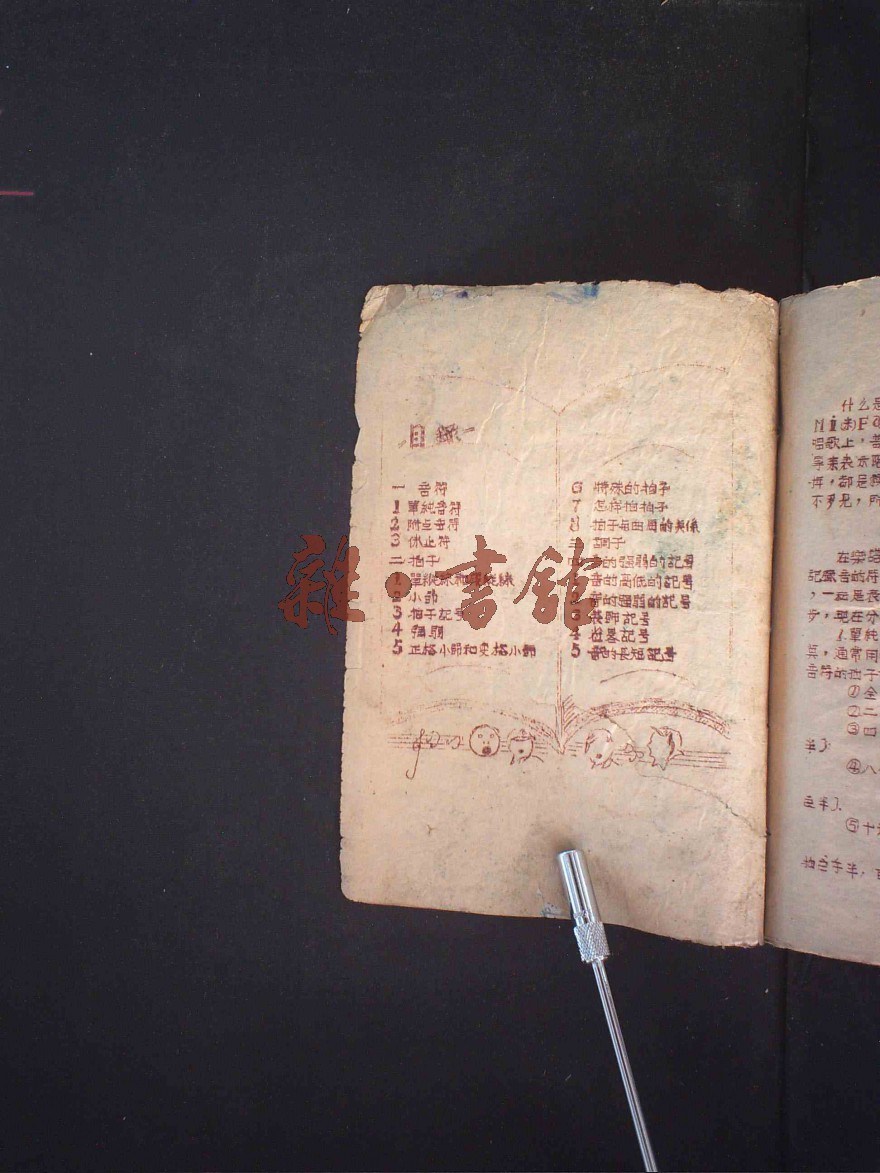 目錄
一 音符
1 單純音符
2 附点音符
3 休止符
二 拍子
1 單縱線和複縱線
2 小節
3 拍子記号
4 強弱
5 正格小節和变格小節
6 特殊的拍子
7 怎样拍拍子
8 拍子与曲調的関係
三 調子
的強弱的記号
音的高低的記号
音的強弱的記号
3 装飾記号
4 省畧記号
5 音的長短記号
雜·書館
什么是
唱歌上，
号来表示
不多見，所
在
記錄音的符
，一面是表
步，現在分
1.單純
通常用
音符的拍子
①全
②二
③四
半).
④八
半).
⑤十